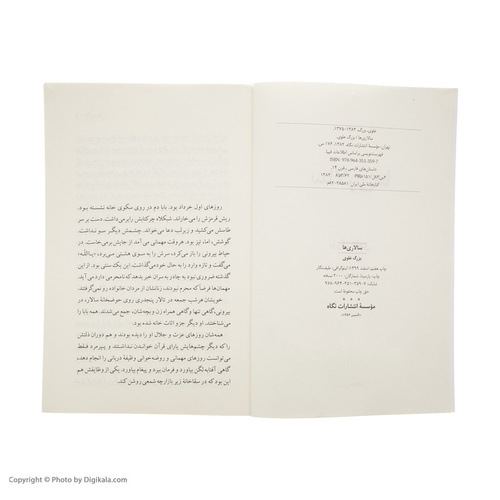 علوی، بزرگ، ۱۲۸۳-۱۳۷۵.
سالاری‌ها / بزرگ علوی.
تهران: مؤسسهٔ انتشارات نگاه، ۱۳۸۲. ۱۷۶ ص.
فهرست‌نویسی براساس اطلاعات فیپا
ISBN: 978-964-351-359-7
داستان‌های فارسی ـ قرن ۱۴.
کتابخانه ملی ایران
سالاری‌ها
بزرگ علوی
چاپ
حق چاپ محفوظ است.
مؤسسهٔ انتشارات نگاه
روزهای اول خرداد بود. بابا دم در روی سکوی خانه نشسته بود.
ریش قرمزش را می‌خاراند. شبکلاه چرکتابش را برمی‌داشت. دست بر سر
طاسش می‌کشید و زیرلب دعا می‌خواند. چشمش دیگر سو نداشت.
گوشش، اما، تیز بود. هر وقت مهمانی می‌آمد از جایش برمی‌خاست. در
حیاط بیرونی را باز می‌کرد، سرش را به سوی هشتی می‌برد، «یاالله»
می‌گفت و تازه وارد را به حال خود می‌گذاشت. این یک سنتی بود. از این
گذشته ضروری نبود به چادر به سران خبر بدهند که مرد غریبه می‌آید.
مهمان‌ها فرضاً که محرم نبودند، زنانشان از مردان خانواده رو نمی‌گرفتند.
خویشان هر شب جمعه در تالار پنجدری روی حوضخانهٔ سالار، در
بیرونی، گاهی تنها و گاهی همراه زن و بچه‌شان، جمع می‌شدند. همه بابا را
می‌شناختند. او دیگر جزو اثاث خانه شده بود.
همه‌شان روزهای عزت و جلال او را دیده بودند و هم دوران ذلتش
را که دیگر چشم‌هایش یارای قرآن خواندن نداشتند و پیرمرد فقط
می‌توانست روزهای مهمانی و روضه‌خوانی وظیفهٔ دربانی را انجام دهد،
گاهی آفتابه لگن بیاورد و فرمان ببرد و پیغام بیاورد. یکی از وظایفش هم
این بود که در سقاخانهٔ زیر بازارچه شمعی روشن کند.
Copyright © Photo by Digikala.com